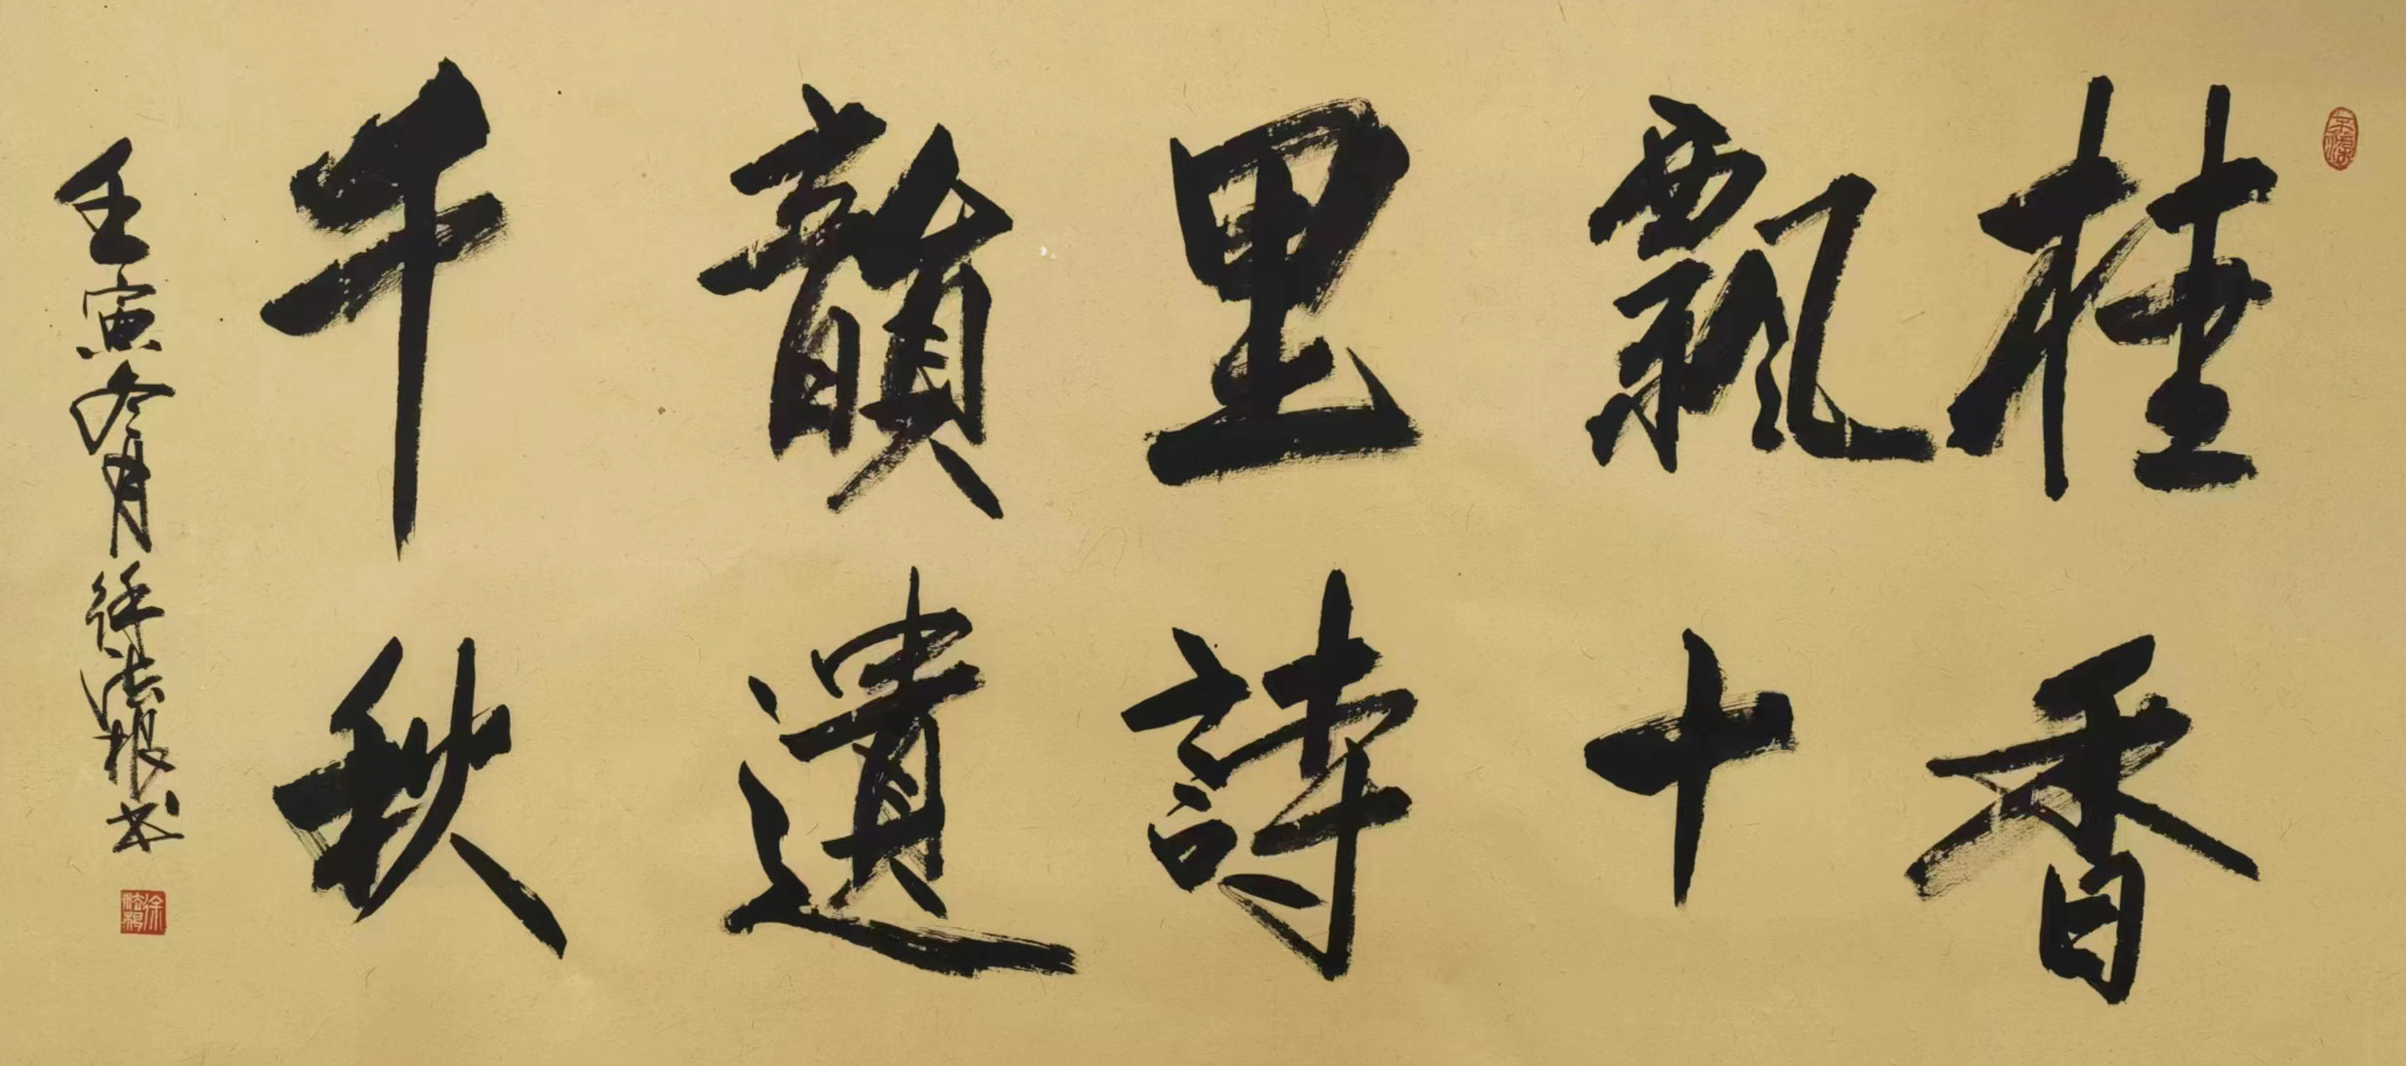 桂香
飄十
里詩
韻遺
千秋
壬寅冬月徐法根书
徐法根